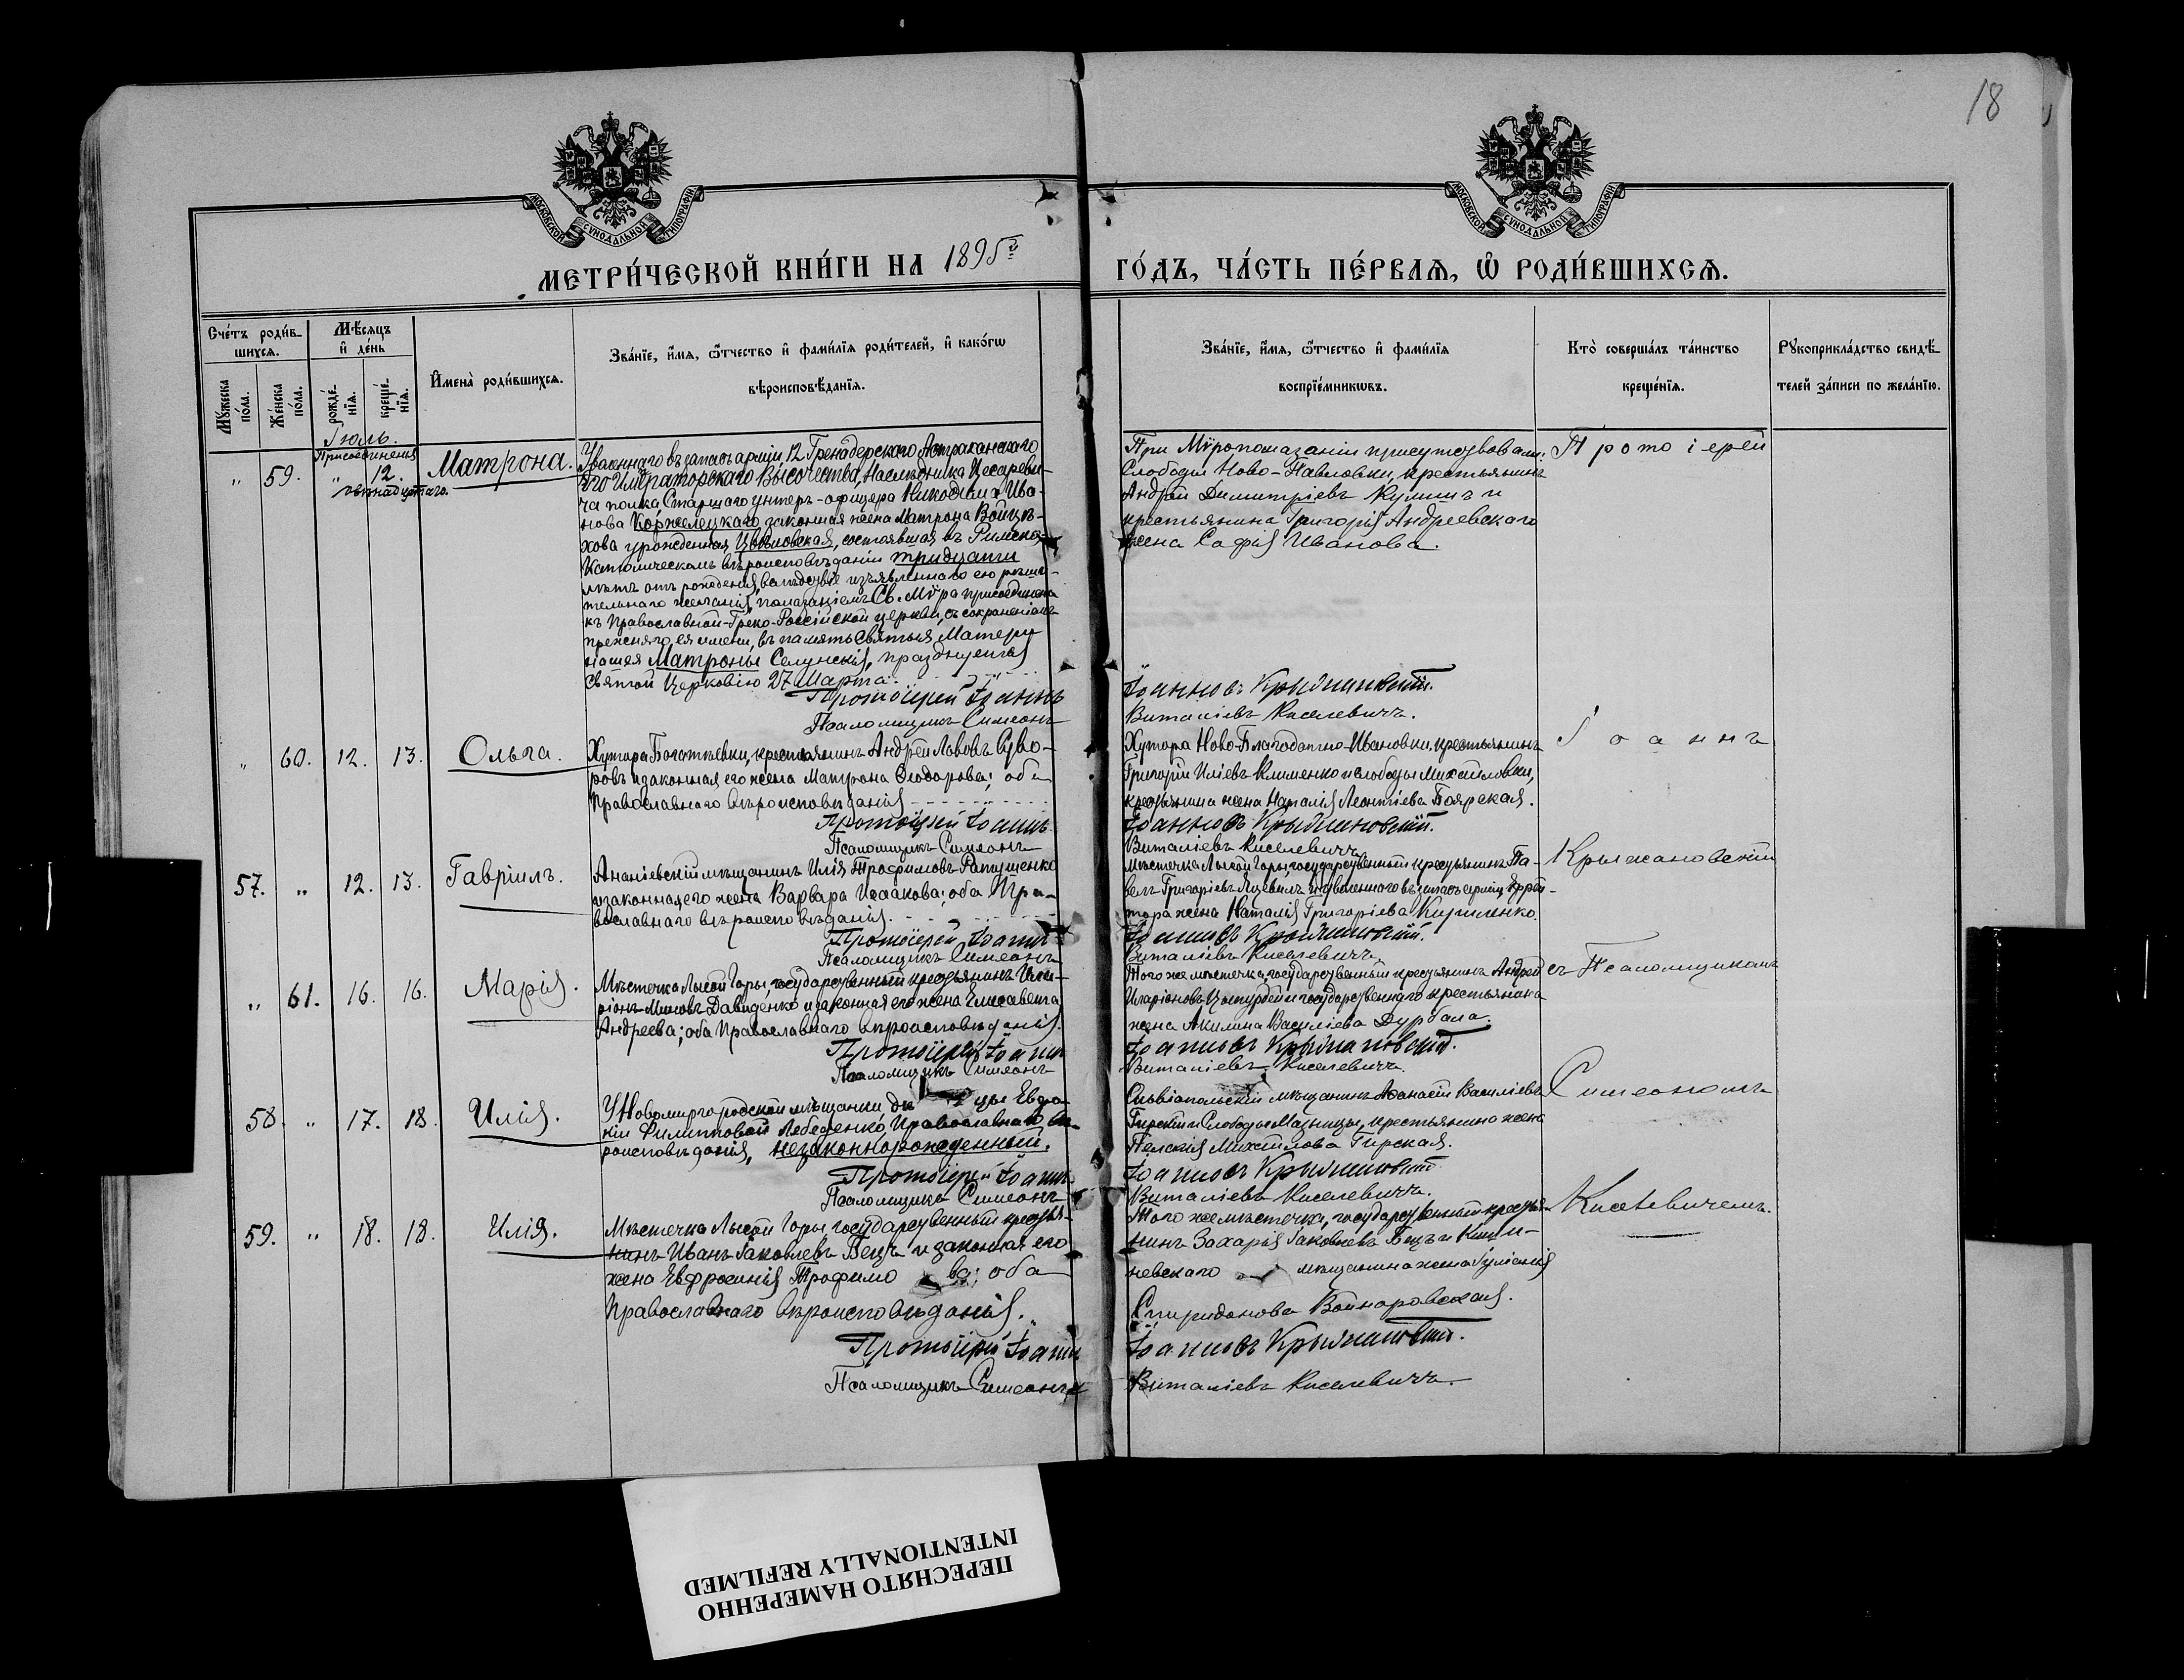 18
МОСКОВСКОЙ СѴНОДАЛЬНОЙ ТИПОГРАФІИ
МОСКОВСКОЙ СѴНОДАЛЬНОЙ ТИПОГРАФІИ
МЕТРИ́ЧЕСКОЙ КНИ́ГИ НА 1895 г.
ГО́ДЪ, ЧА́СТЬ ПЕ́РВАЯ, Ѿ РОДИ́ВШИХСЯ.
Сче́тъ роди́в-
шихся.
Му́жеска
по́ла.
Же́нска
по́ла.
Мѣ́сяцъ
и҆ де́нь
рожде́-
нїя.
креще́-
нїя.
И҆мена̀ роди́вшихся.
Зва́нїе, и҆́мя, ѻ҆́тчество и҆ фами́лїя роди́телей, и҆ како́гѡ
вѣроисповѣ́данїя.
Зва́нїе, и҆́мя, ѻ҆́тчество и҆ фами́лїя
воспрїе́мникѡвъ.
Кто̀ соверша́лъ та́инство
креще́нїя.
Рꙋкоприкла́дство свидѣ́-
телей за́писи по жела́нїю.
Іюль.
Присоединенія
„ 59. „ 12.
Матрона.
Уволеннаго въ запасъ арміи 12 Гренадерскаго Астраханскаго
Его Императорскаго Высочества, Наслѣдника Цесареви-
ча полка, Старшаго унтеръ-офицера Никодима Ива-
нова Коржелецкаго, законная жена Матрона Войцѣ-
хова урожденная, состоявшая въ Римско-
Католическомъ вѣроисповѣданіи тридцати
лѣтъ отъ рожденія, вслѣдствіе изъявленнаго ею рѣши-
тельнаго желанія, помазаніемъ Св. Мѵра присоединена
къ Православной-Греко-Россійской церкви, съ сохраненіемъ
прежняго, ея имени, въ память Святыя Матери
нашея Матроны Селунскія, празднуемыя
Святой Церковію 27 Марта.
Протоіерей Іоаннъ
Псаломщикъ Симеонъ
При Мѵропомазаніи присутствовали:
Слободы Ново-Павловки, крестьянинъ
Андрей Димитріевъ Кулишъ и
крестьянина Григорія Андреевскаго
жена Софія Иванова.
Іоанновъ Крыжановскій.
Виталіевъ Киселевичъ.
Протоіерей
„ 60. 12. 13. Ольга.
Хутора Богатыевки, крестьянинъ Андрей Львовъ Суво-
ровъ и законная его жена Матрона Ѳеодорова; оба
Православнаго вѣроисповѣданія
Протоіерей Іоаннъ
Псаломщикъ Симеонъ
Хутора Ново-Благодатно-Ивановки, крестьянинъ
Григорій Иліевъ Клименко и слободы Михайловки,
крестьянина жена Наталія Леонтіева Боярская.
Іоанновъ Крыжановскій.
Виталіевъ Киселевичъ.
Іоаннъ
57. „ 12. 13. Гавріилъ.
Ананіевскій мѣщанинъ Илія Трофимовъ Рапушенко
и законная его жена Варвара Исаакова; оба Пра-
вославнаго вѣроисповѣданія.
Протоіерей Іоаннъ
Псаломщикъ Симеонъ
Мѣстечка Лысой Горы, государственный крестьянинъ Па-
велъ Григоріевъ и уволеннаго въ запасъ арміи, Ефрей-
тора жена Наталія Григоріева Кириленко.
Іоанновъ Крыжановскій.
Виталіевъ Киселевичъ.
Крыжановскій
„ 61. 16. 16. Марія.
Мѣстечка Лысой Горы, государственный крестьянинъ Ила-
ріонъ Миновъ Давиденко и законная его жена Елисавета
Андреева; оба Православнаго вѣроисповѣданія.
Протоіерей Іоаннъ
Псаломщикъ Симеонъ
Того же мѣстечка, государственный крестьянинъ Андрей
Иларіоновъ и государственнаго крестьянина
жена Акилина Василіева Дурбала.
Іоанновъ Крыжановскій.
Виталіевъ Киселевичъ.
съ Псаломщикомъ
58. „ 17. 18. Илія.
У Новомиргородской мѣщанки, дѣ цы Евдо-
кіи Филипповой Лебеденко, Православнаго вѣ-
роисповѣданія, незаконнорожденный.
Протоіерей Іоаннъ
Псаломщикъ Симеонъ
Ольвіопольскій мѣщанинъ Аѳанасій Василіевъ
Гирскій и Слободы Мазницы, крестьянина жена
Пелагія Михайлова Гирская.
Іоанновъ Крыжановскій
Виталіевъ Киселевичъ.
Симеономъ
59. „ 18. 18. Илія.
Мѣстечка Лысой Горы государственный крестья-
нинъ Иванъ Іаковлевъ Бецъ и законная его
жена Евфросинія Трофимо ва; оба
Православнаго вѣроисповѣданія.
Протоіерей Іоаннъ
Псаломщикъ Симеонъ
Того же мѣстечка, государственный крестья-
нинъ Захарія Іаковлевъ Бецъ и Киши-
невскаго мѣщанина жена Іуліанія
Спиридонова Войнаровская.
Іоанновъ Крыжановскій.
Виталіевъ Киселевичъ.
Киселевичемъ.
ПЕРЕСНЯТО НАМЕРЕННО
INTENTIONALLY REFILMED